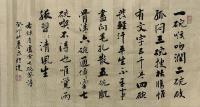 一碗喉吻潤二碗破
孤悶三碗搜枯腸惟
有文字五千卷四碗
發輕汗平生不平事
盡向毛孔散五碗肌
骨清六碗通仙靈七
碗喫不得也唯覺兩
腋習習清風生